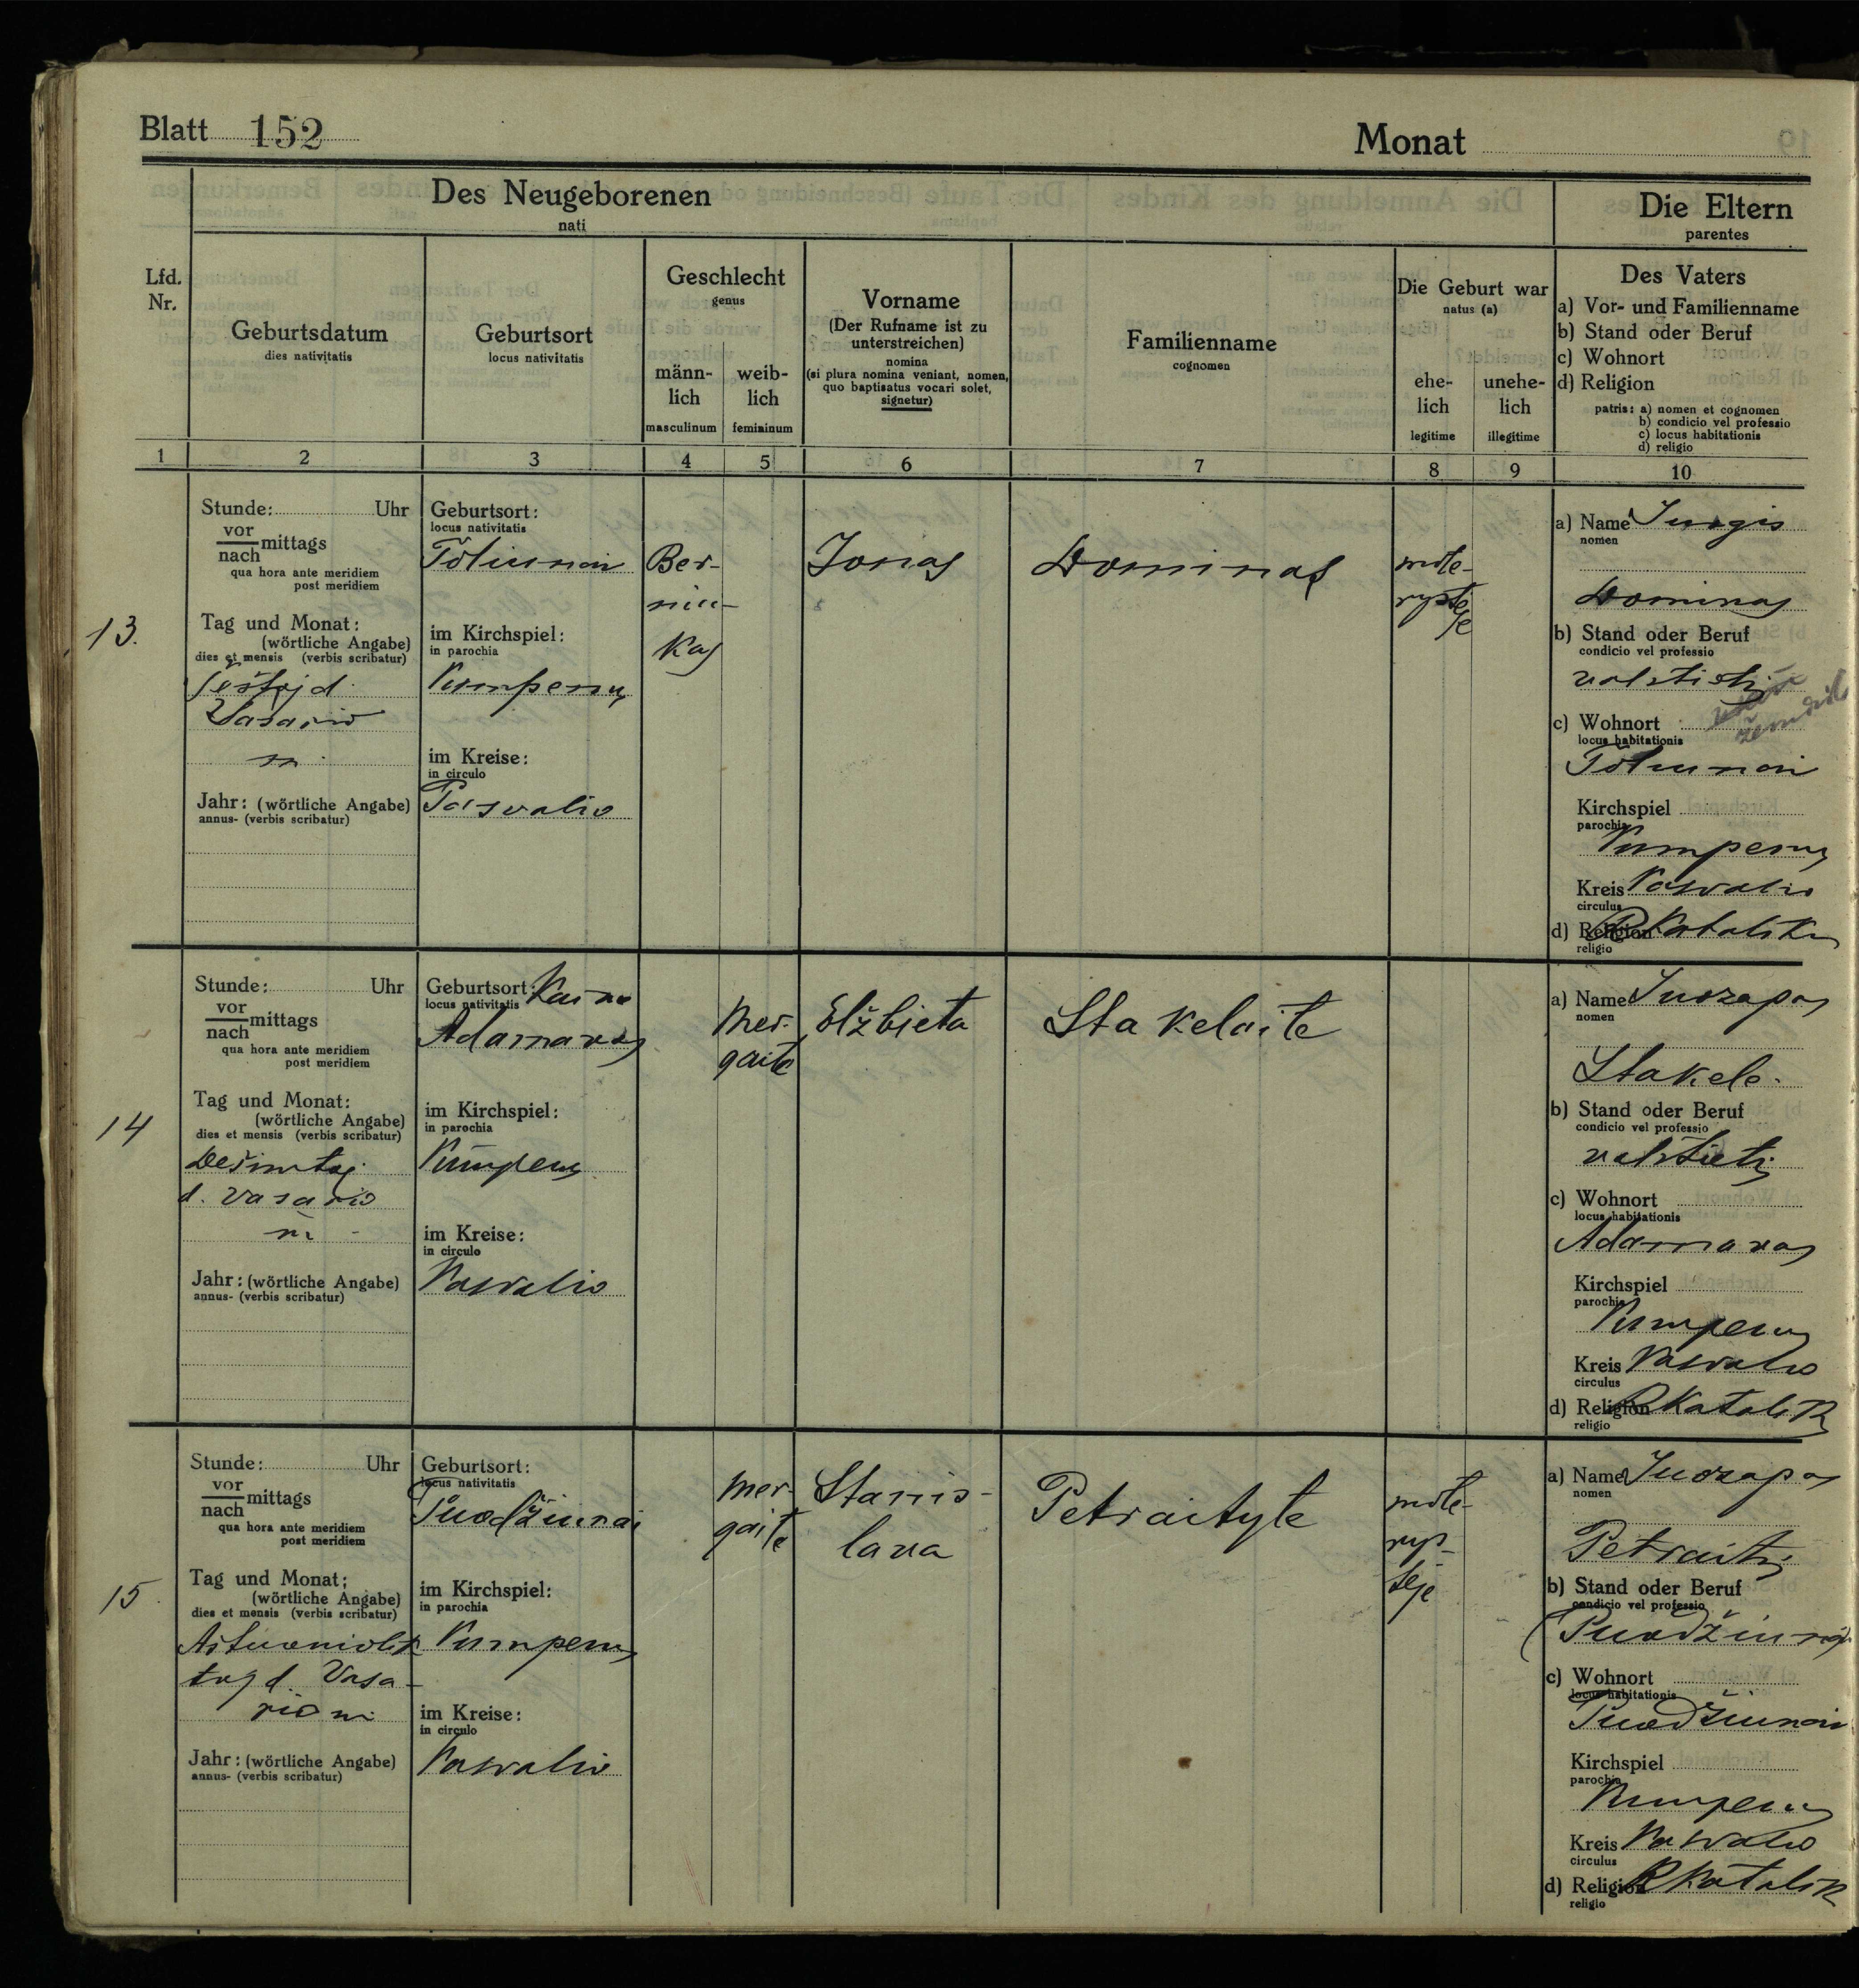 Blatt 152
Monat
Des Neugeborenen
nati
Die Eltern
parentes
Lfd.
Nr.
Geburtsdatum
dies nativitatis
Geburtsort
locus nativitatis
Geschlecht
genus
männ-
lich
masculinum
weib-
lich
femininum
Vorname
(Der Rufname ist zu
unterstreichen)
nomina
(si plura nomina veniant, nomen,
quo baptisatus vocari solet,
signetur)
Familienname
cognomen
Die Geburt war
natus (a)
ehe-
lich
legitime
unehe-
lich
illegitime
Des Vaters
a) Vor- und Familienname
b) Stand oder Beruf
c) Wohnort
d) Religion
patris: a) nomen et cognomen
b) condicio vel professio
c) locus habitationis
d) religio
1 2 3 4 5 6 7 8 9 10
13.
Stunde: Uhr
vor
nach mittags
qua hora ante meridiem
post meridiem
Tag und Monat:
(wörtliche Angabe)
dies et mensis (verbis scribatur)
šeštoj d.
Vasario
m.
Jahr: (wörtliche Angabe)
annus- (verbis scribatur)
Geburtsort:
locus nativitatis
Toliunai
im Kirchspiel:
in parochia
Pumpenų
im Kreise:
in circulo
Pasvalio
Ber-
niu-
kas
Jonas
Dominas
mote-
rystė
je
a) Name Jurgis
nomen
Dominas
b) Stand oder Beruf
condicio vel professio
valstietis
c) Wohnort
locus habitationis
Toliunai
Kirchspiel
parochia
Pumpenų
Kreis Pasvalio
circulus
d) Religion R Katalikų
religio
14
Stunde: Uhr
vor
nach mittags
qua hora ante meridiem
post meridiem
Tag und Monat:
(wörtliche Angabe)
dies et mensis (verbis scribatur)
Dešimtoj
d. Vasario
m.
Jahr: (wörtliche Angabe)
annus- (verbis scribatur)
Geburtsort: Kaimo
locus nativitatis
Adamavas
im Kirchspiel:
in parochia
Pumpenų
im Kreise:
in circulo
Pasvalio
Mer-
gaitė
Elžbieta
Stakelaite
a) Name Juozapas
nomen
Stakelė
b) Stand oder Beruf
condicio vel professio
valstietis
c) Wohnort
locus habitationis
Adamavas
Kirchspiel
parochia
Pumpenų
Kreis Pasvalio
circulus
d) Religion R Katalik
religio
15.
Stunde: Uhr
vor
nach mittags
qua hora ante meridiem
post meridiem
Tag und Monat:
(wörtliche Angabe)
dies et mensis (verbis scribatur)
Aštuoniolik
toj d. Vasa-
rio m.
Jahr: (wörtliche Angabe)
annus- (verbis scribatur)
Geburtsort:
locus nativitatis
Puodžiunai
im Kirchspiel:
in parochia
Pumpenų
im Kreise:
in circulo
Pasvalio
Mer-
gaitė
Stanis-
lava
Petraityte
mote-
rys-
tėje
a) Name Juozapas
nomen
Petraitis
b) Stand oder Beruf
condicio vel professio
c) Wohnort
locus habitationis
Puodžiunai
Kirchspiel
parochia
Pumpenų
Kreis Pasvalio
circulus
d) Religion R Katalik
religio